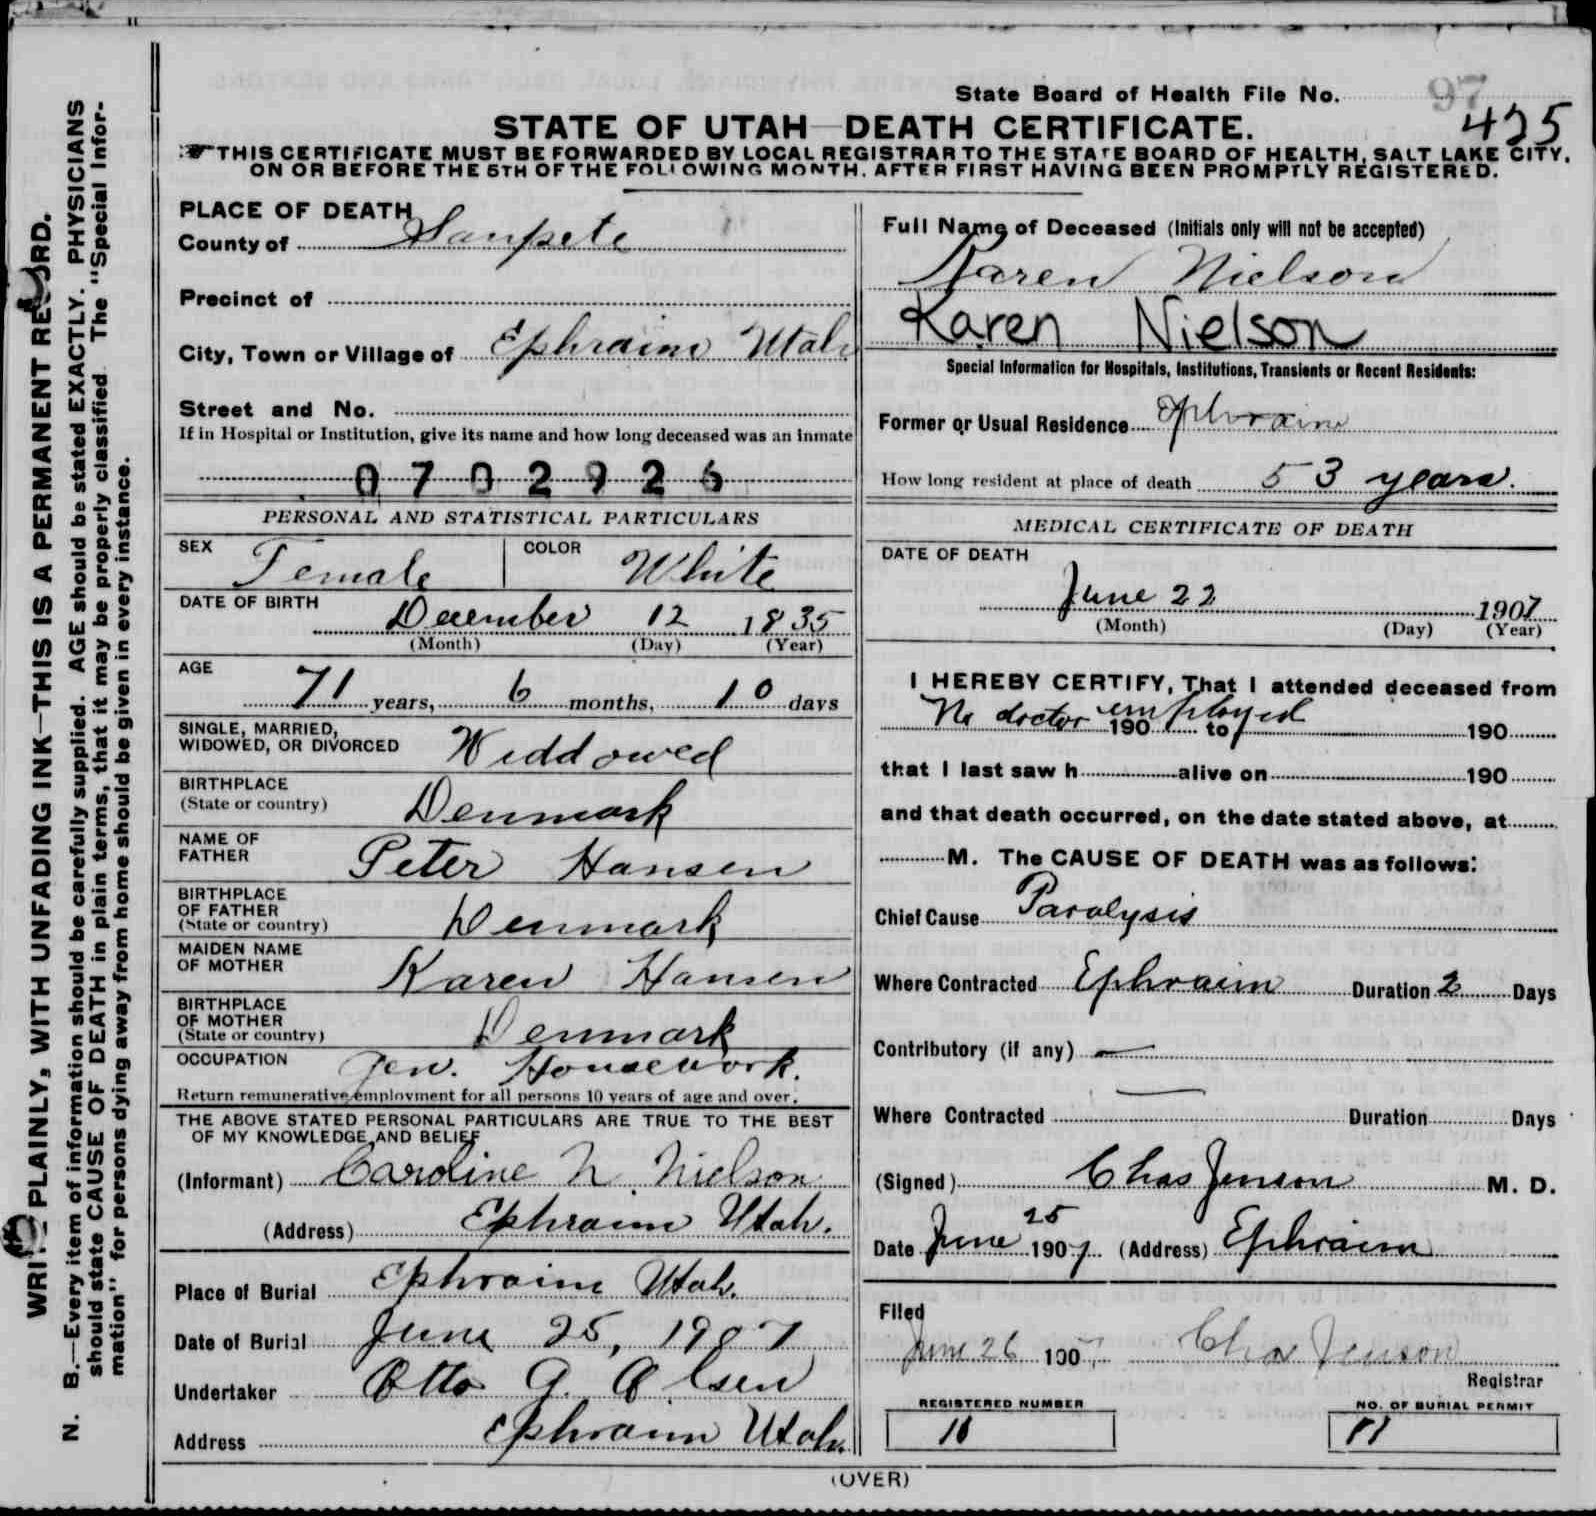 State Board of Health File No. 97
425
STATE OF UTAH—DEATH CERTIFICATE.
THIS CERTIFICATE MUST BE FORWARDED BY LOCAL REGISTRAR TO THE STATE BOARD OF HEALTH, SALT LAKE CITY,
ON OR BEFORE THE 5TH OF THE FOLLOWING MONTH, AFTER FIRST HAVING BEEN PROMPTLY REGISTERED.
PLACE OF DEATH
County of Sanpete
Precinct of
City, Town or Village of Ephraim Utah
Street and No.
If in Hospital or Institution, give its name and how long deceased was an inmate
0702926
PERSONAL AND STATISTICAL PARTICULARS
SEX Female COLOR White
DATE OF BIRTH December 12 1835
(Month) (Day) (Year)
AGE 71 years, 6 months, 10 days
SINGLE, MARRIED,
WIDOWED, OR DIVORCED Widdowed
BIRTHPLACE
(State or country) Denmark
NAME OF
FATHER Peter Hansen
BIRTHPLACE
OF FATHER
(State or country) Denmark
MAIDEN NAME
OF MOTHER Karen Hansen
BIRTHPLACE
OF MOTHER
(State or country) Denmark
OCCUPATION Gen. Housework.
Return remunerative employment for all persons 10 years of age and over.
THE ABOVE STATED PERSONAL PARTICULARS ARE TRUE TO THE BEST
OF MY KNOWLEDGE AND BELIEF
(Informant) Caroline N. Nielson
(Address) Ephraim Utah.
Place of Burial Ephraim Utah.
Date of Burial June 25, 1907
Undertaker Otto A. Olsen
Address Ephraim Utah.
Full Name of Deceased (Initials only will not be accepted)
Karen Nielson
Karen Nielson
Special Information for Hospitals, Institutions, Transients or Recent Residents:
Former or Usual Residence Ephraim
How long resident at place of death 53 years.
MEDICAL CERTIFICATE OF DEATH
DATE OF DEATH
June 22 1907
(Month) (Day) (Year)
I HEREBY CERTIFY, That I attended deceased from
No doctor employed 190 to 190
that I last saw h alive on 190
and that death occurred, on the date stated above, at
M. The CAUSE OF DEATH was as follows:
Chief Cause Paralysis
Where Contracted Ephraim Duration 2 Days
Contributory (if any) —
Where Contracted — Duration Days
(Signed) Chas Jenson M. D.
Date June 25 1907 (Address) Ephraim
Filed
June 26 1907 Chas Jenson
Registrar
REGISTERED NUMBER
NO. OF BURIAL PERMIT
(OVER)
WRITE PLAINLY, WITH UNFADING INK—THIS IS A PERMANENT RECORD.
N. B.—Every item of information should be carefully supplied. AGE should be stated EXACTLY. PHYSICIANS
should state CAUSE OF DEATH in plain terms, that it may be properly classified. The "Special Infor-
mation" for persons dying away from home should be given in every instance.